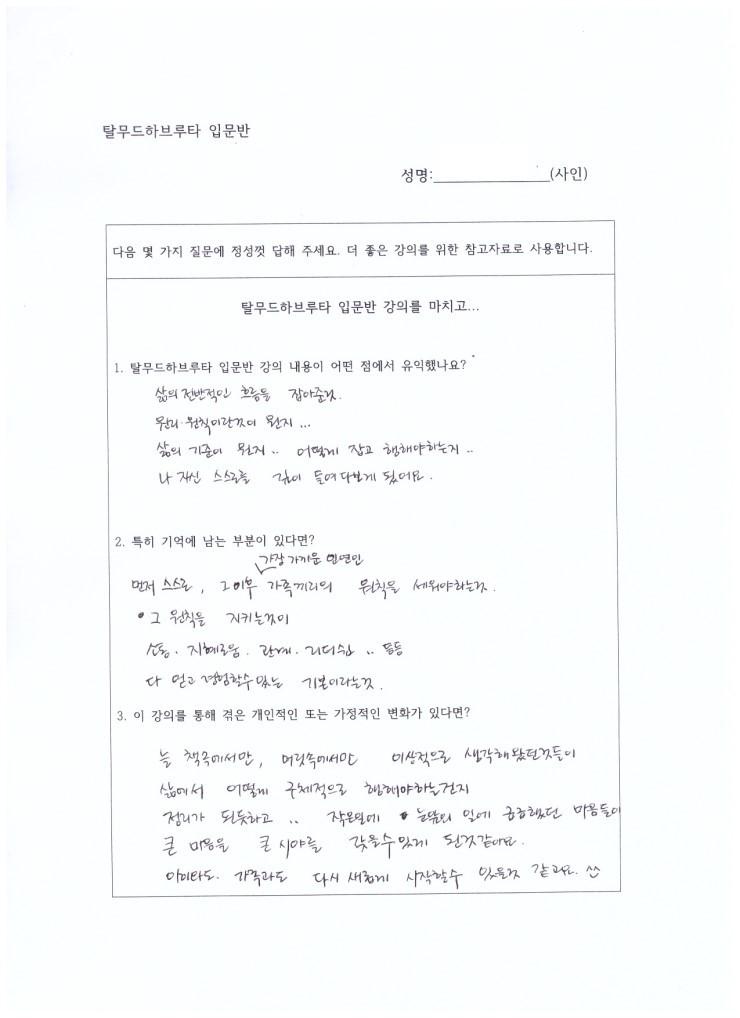 탈무드하브루타 입문반
성명:______________(사인)
다음 몇 가지 질문에 정성껏 답해 주세요. 더 좋은 강의를 위한 참고자료로 사용합니다.
탈무드하브루타 입문반 강의를 마치고...
1. 탈무드하브루타 입문반 강의 내용이 어떤 점에서 유익했나요?
삶의 전반적인 흐름을 잡아준것.
원리·원칙이란것이 뭔지 ...
삶의 기준이 뭔지 .. 어떻게 잡고 행해야하는지 ..
나 자신 스스로를 깊이 들여다보게 됬어요.
2. 특히 기억에 남는 부분이 있다면?
가장 가까운
먼저 스스로, 그이후 가족끼리의 원칙을 세워야하는것.
그 원칙을 지키는것이
소통. 지혜로움. 관계. 리더쉽 .. 등등
다 얻고 경험할수있는 기본이라는것.
3. 이 강의를 통해 겪은 개인적인 또는 가정적인 변화가 있다면?
늘 책속에서만, 머릿속에서만 이상적으로 생각해왔던것들이
삶에서 어떻게 구체적으로 행해야하는건지
정리가 된듯하고 .. 작은일에 눈앞의 일에 급급했던 마음들이
큰 마음을 큰 시야를 갖을수있게 된것같아요.
아이타도. 가족과도 다시 새롭게 시작할수 있을것 같고요. ^^